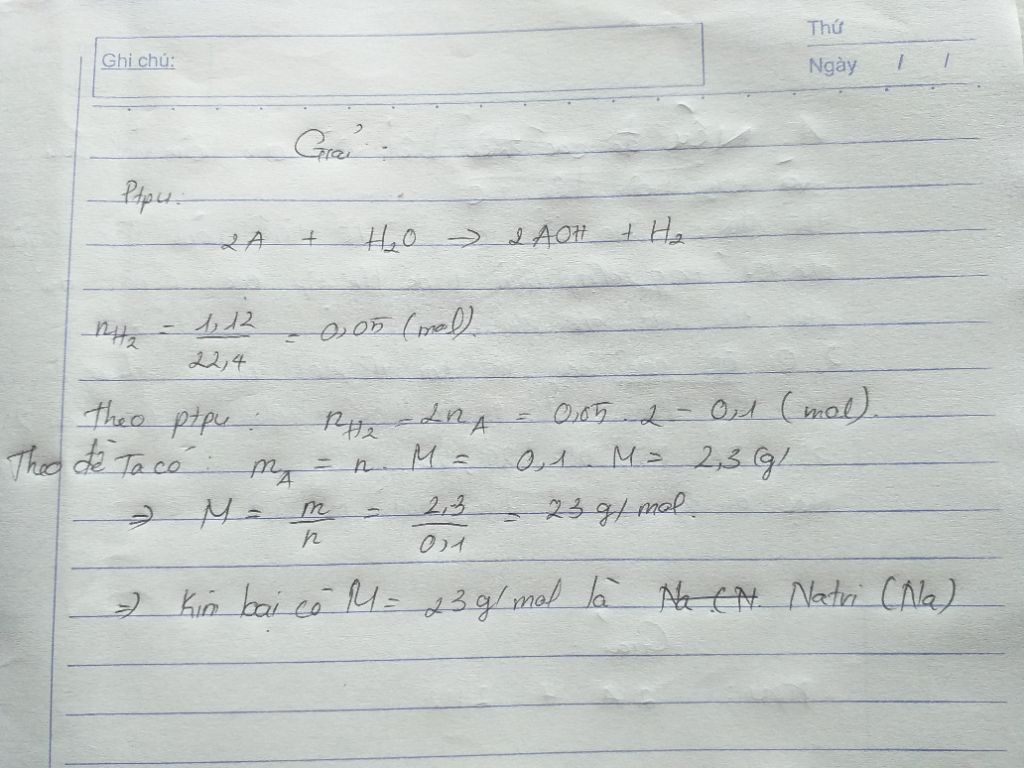 Thứ
Ghi chú:
Ngày / /
Giải :
Ptpu:
2A + H₂O → 2AOH + H₂
n_H₂ = 1,12/22,4 = 0,05 (mol).
Theo ptpu : n_H₂ = 2n_A = 0,05 . 2 = 0,1 (mol).
Theo đề Ta có : m_A = n . M = 0,1 . M = 2,3 (g)
⇒ M = m/n = 2,3/0,1 = 23 g/mol.
⇒ Kim loại có M = 23 g/mol là Na (N. Natri (Na)